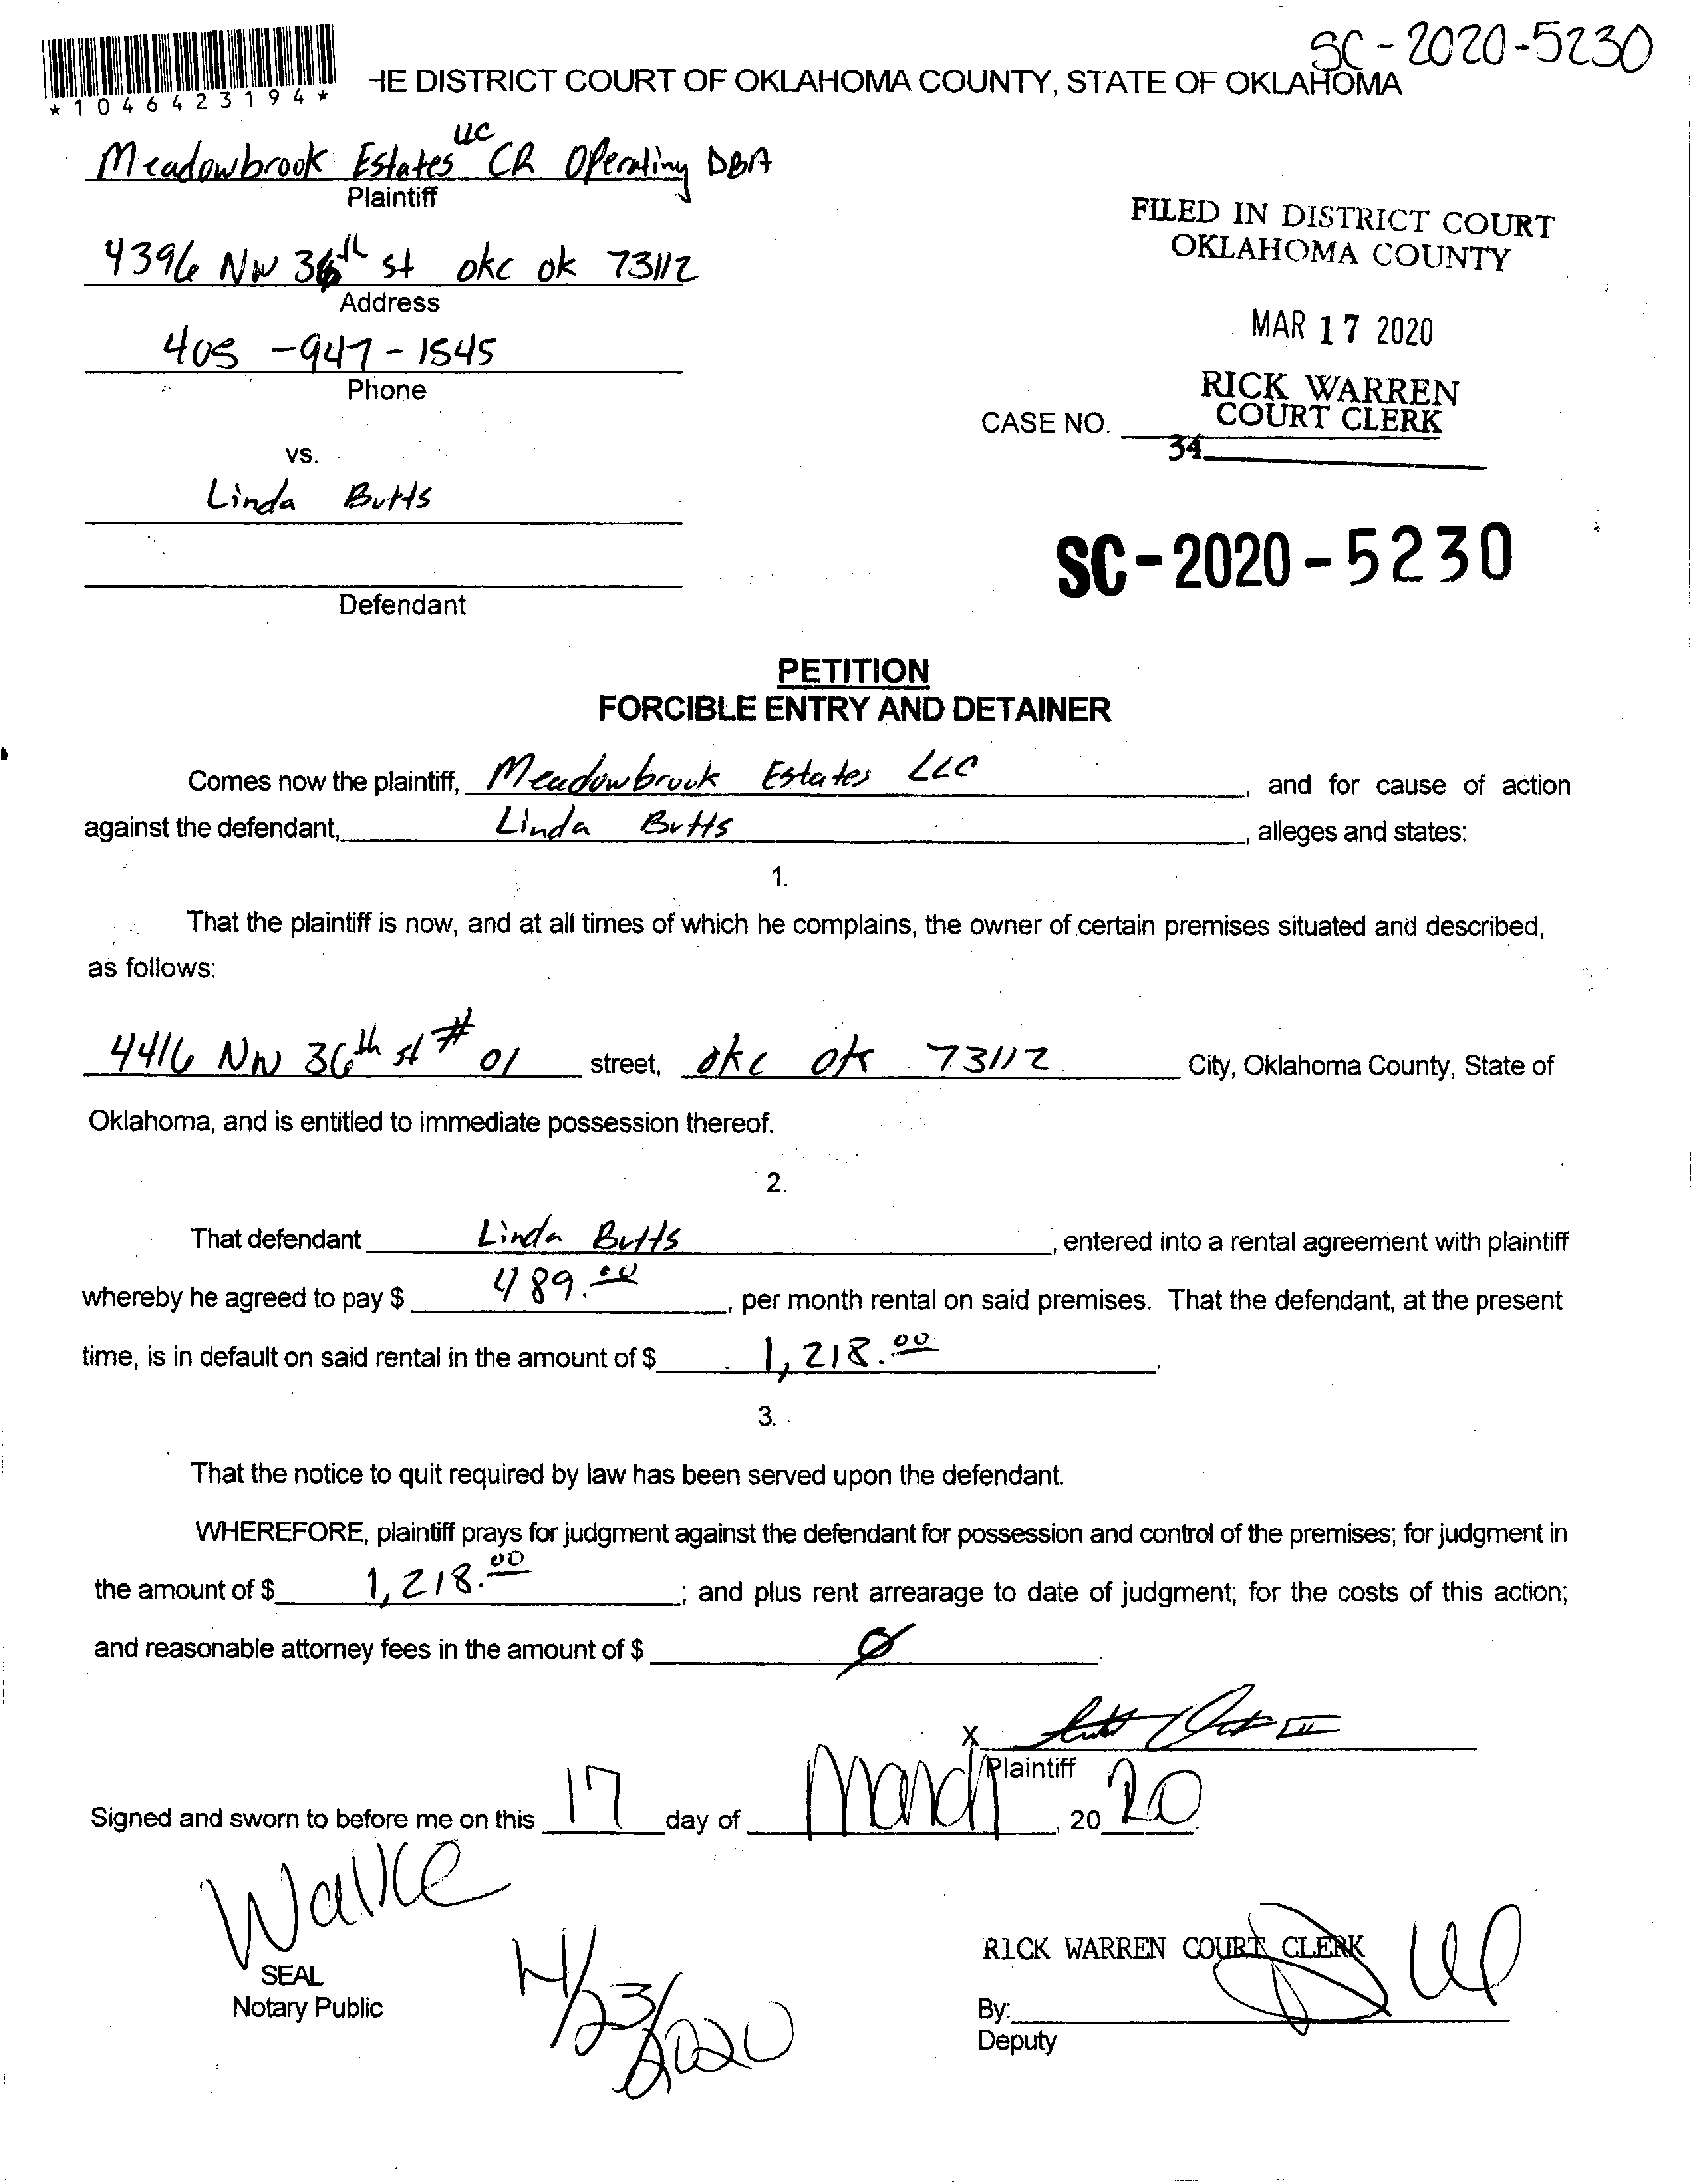 SC-2020-5230
*1046423194*
HE DISTRICT COURT OF OKLAHOMA COUNTY, STATE OF OKLAHOMA
Meadowbrook Estates LLC CR Operating DBA
Plaintiff
4396 NW 36th st okc ok 73112
Address
405-947-1545
Phone
FILED IN DISTRICT COURT
OKLAHOMA COUNTY
MAR 17 2020
RICK WARREN
COURT CLERK
CASE NO.
34
vs.
Linda Butts
Defendant
SC-2020-5230
PETITION
FORCIBLE ENTRY AND DETAINER
Comes now the plaintiff, Meadowbrook Estates LLC, and for cause of action
against the defendant, Linda Butts, alleges and states:
1.
That the plaintiff is now, and at all times of which he complains, the owner of certain premises situated and described,
as follows:
4416 NW 36th st # 01 street, okc ok 73112 City, Oklahoma County, State of
Oklahoma, and is entitled to immediate possession thereof.
2.
That defendant Linda Butts, entered into a rental agreement with plaintiff
whereby he agreed to pay $ 489.00, per month rental on said premises. That the defendant, at the present
time, is in default on said rental in the amount of $ 1,218.00.
3.
That the notice to quit required by law has been served upon the defendant.
WHEREFORE, plaintiff prays for judgment against the defendant for possession and control of the premises; for judgment in
the amount of $ 1,218.00; and plus rent arrearage to date of judgment; for the costs of this action;
and reasonable attorney fees in the amount of $ Ø.
X
Plaintiff
Signed and sworn to before me on this 17 day of March, 2020.
SEAL
Notary Public
4/23/2020
RICK WARREN COURT CLERK
By:
Deputy